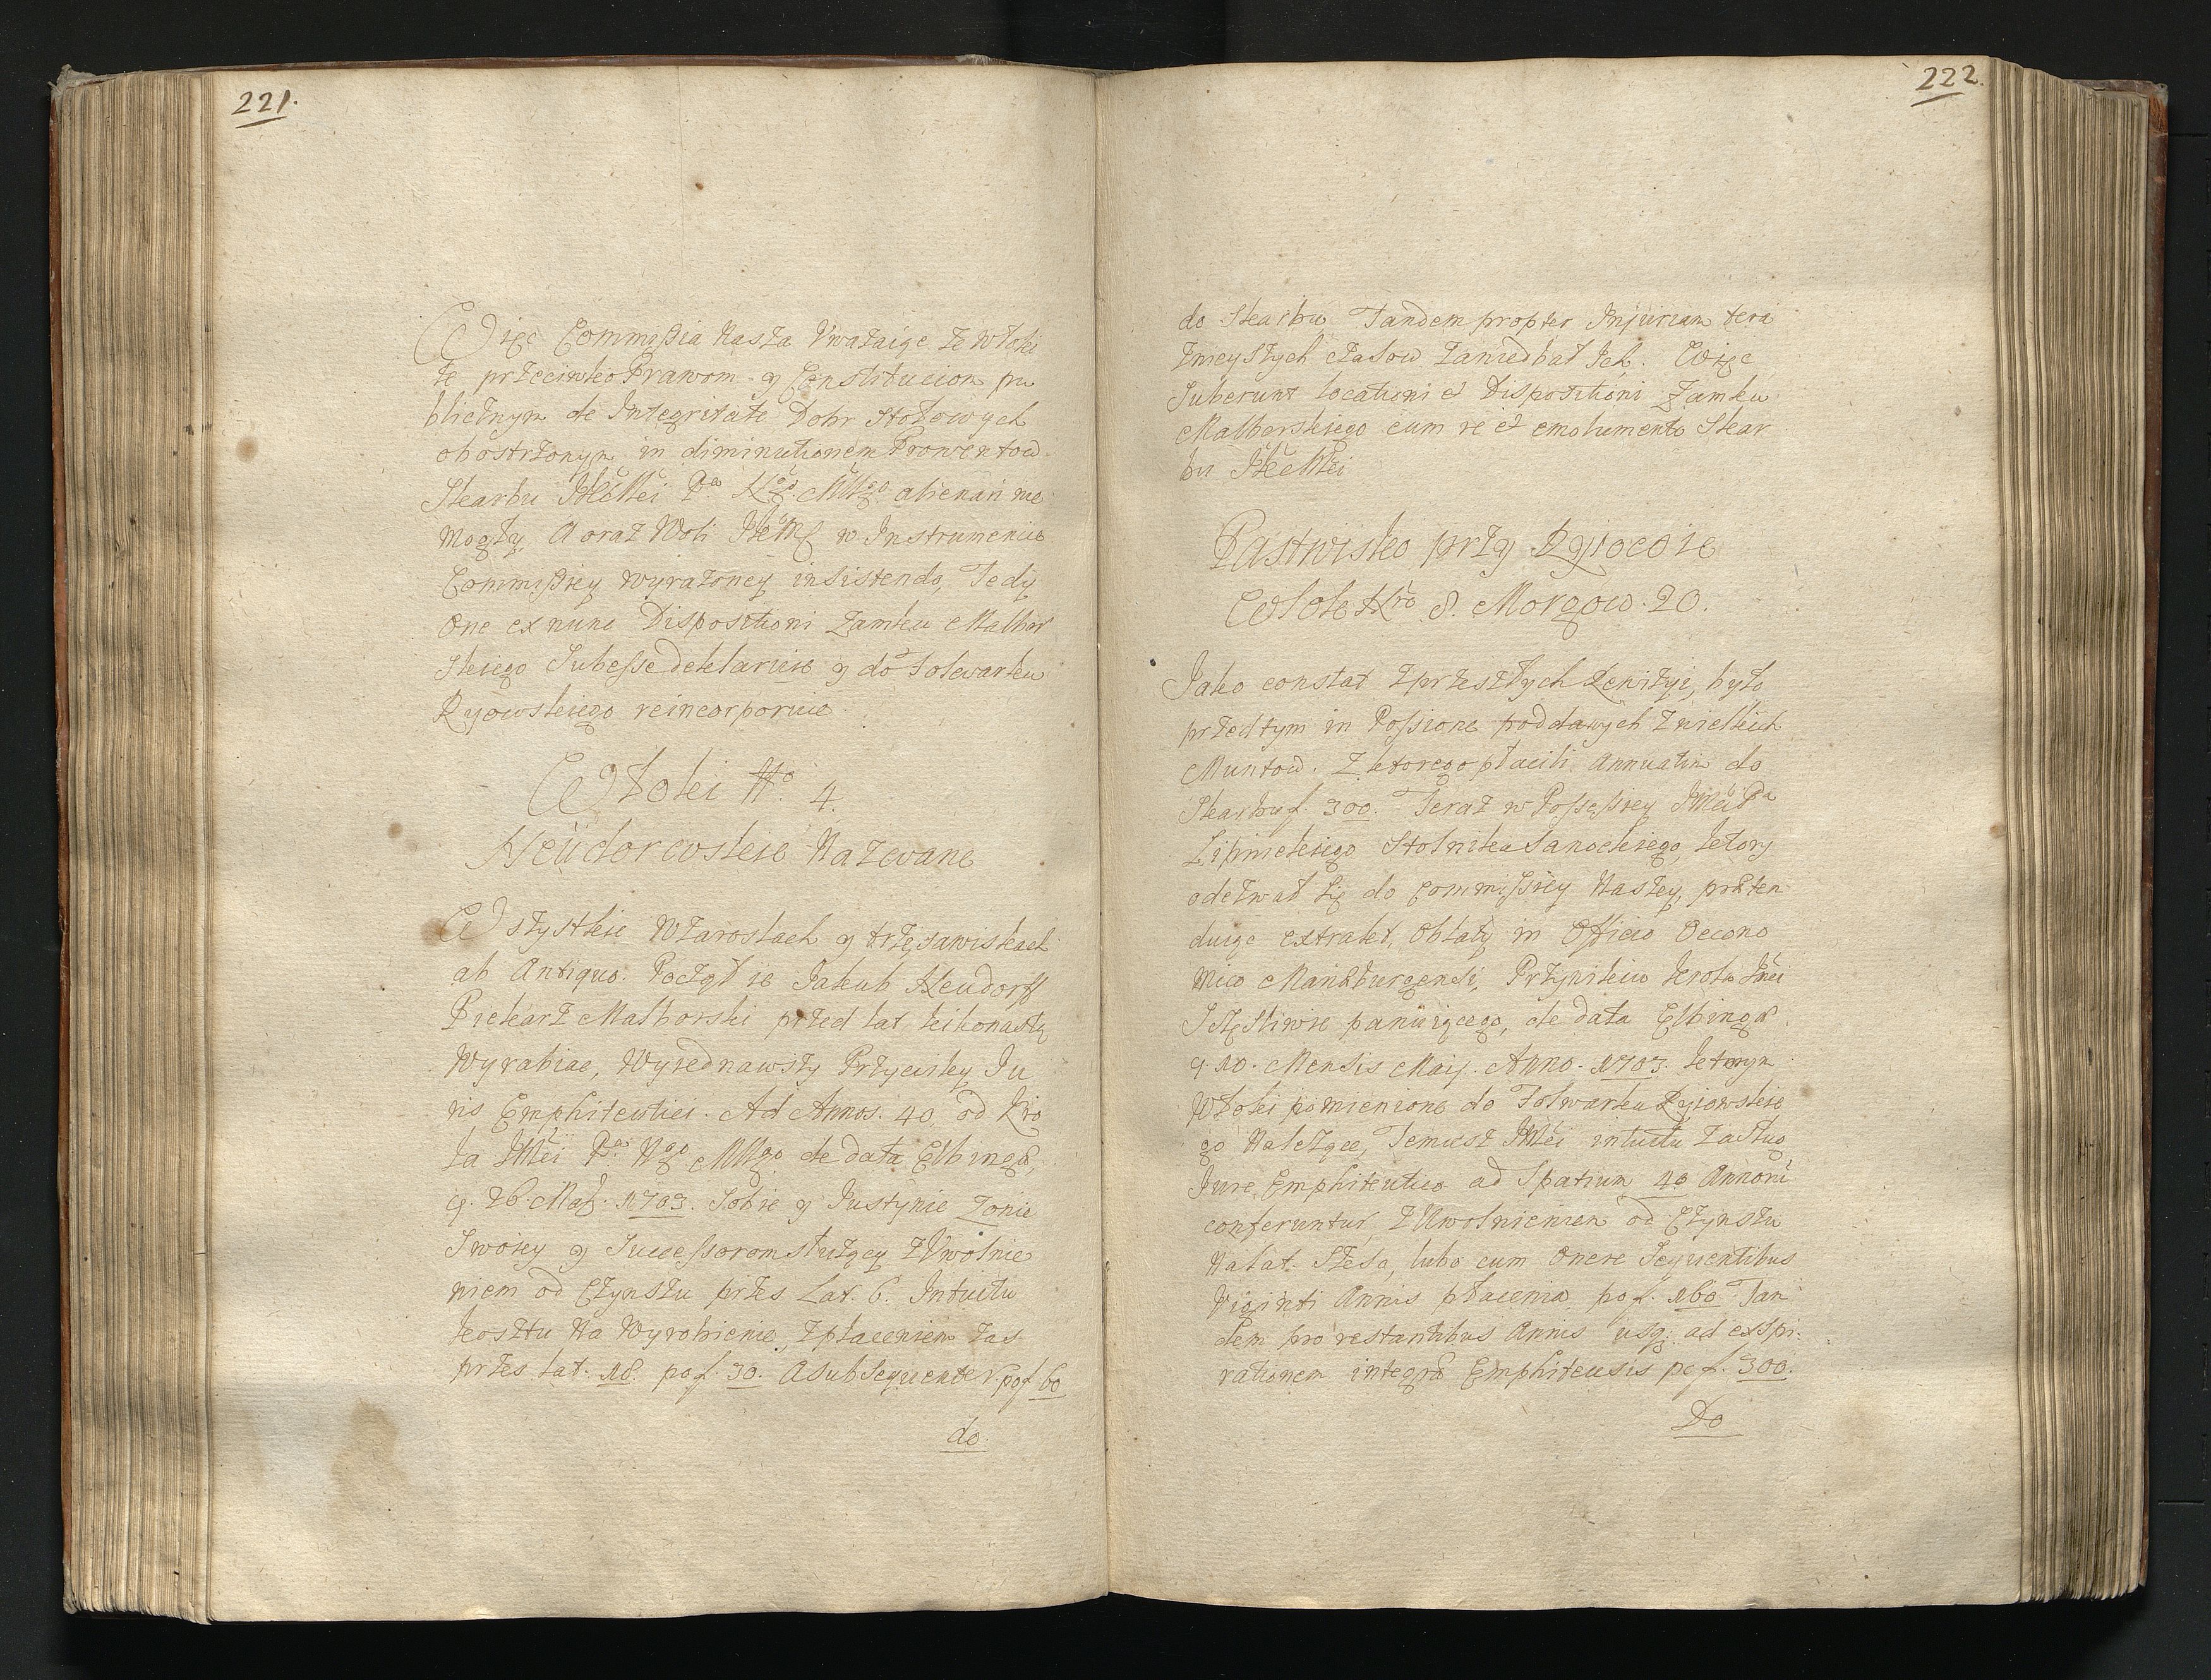 221.
Więc Commissia Nasza Uwaźaiąc że Włoki
te przeciwko Prawom y Constitucion pu
blicznym de Integritate Dobr Stołowych
obostrzonym in diminutionem Prowentow
Skarbu JKcMci Pa Ngo MMgo alienari nie
Mogły, A oraz Woli JKcMści w Instrumencie
Commissiey wyrażoney insistendo, Tedy
One ex nunc Dispositioni Zamku Malbor
Skiego Subesse deklaruie y do Folwarku
Ryowskiego reincorporuie.
Włoki No 4.
Neüdorwskie Nazwane
Wszystkie w Zarostach y trzęsawiskach
ab Antiquo. Począł ie Jakub Neudorff
Piekarz Malborski przed lat kilkonastą
Wyrabiac, Wyiednawszy Przywiley Ju
ris Emphiteutici. Ad Annos. 40. od Kro
la JMci Pa Ngo MMgo de data Elbingæ,
q. 26. Maÿ. 1703. Sobie y Justynie Zonie
Swoiey y Successorom słuźący z Uwolnie
niem od Czynszu przes Lat. 6. Intuitu
kosztu Na Wyrobienie, z płaceniem zas
przes lat. 18. po f. 30. A subsequenter po f 60
do.
222.
do Skarbu Tandem propter Injuriam tera
znieyszych czasow zaniedbał Jch. Więc
Suberunt locationi et Dispositioni Zamku
Malborskiego cum re et emolumento Skar
bu JKcMści
Pastwisko przy Ryiocoie
Włok Nro 8. Morgow. 20.
Jako constat z przeszłych Rewizyi, było
przedtym in Possione poddanych z wielkich
Muntow. Z ktorego płacili Annuatim do
Skarbu f. 300. Teraz w Possessiey JMci Pa
Lipinskiego Stolnika Sanockiego, ktory
odezwał się do Commissiey Naszey, præten
duiąc extrakt, Oblaty in Officio Oecono
mico Mariæburgensi, Przywileiu Krola Jmci
Szczęśliwie panuiącego, de data Elbingæ
q. 10. Mensis Maij. Anno. 1703. ktorym
Włoki pomienione do Folwarku Ryiowskie
go Nalezące, Temusz JMci intuitu zasług
Jure Emphiteutico ad Spatium 40 Annorū
conferuntur, z Uwolnieniem od Czynszu
Na lat. Szesc, lubo cum Onere Sequentibus
Viginti Annis płacenia po f. 160 Tan
dem pro restantibus Annis usq; ad exspi-
rationem integræ Emphiteusis po f. 300.
Do